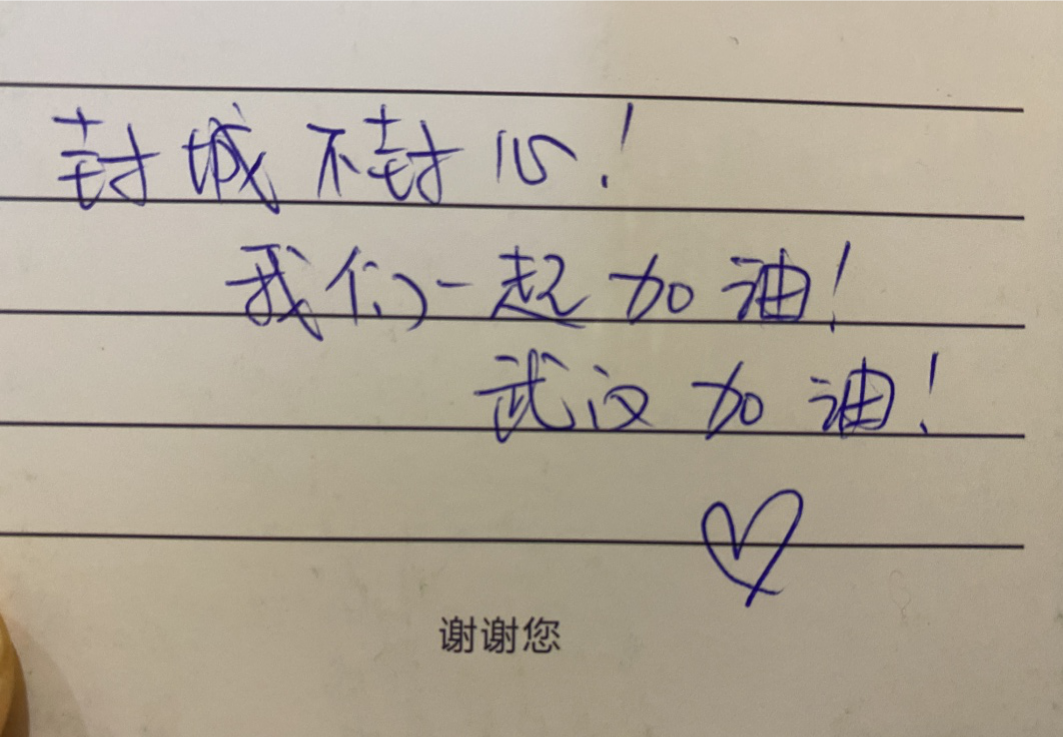 封城不封心！
我们一起加油！
武汉加油！
谢谢您